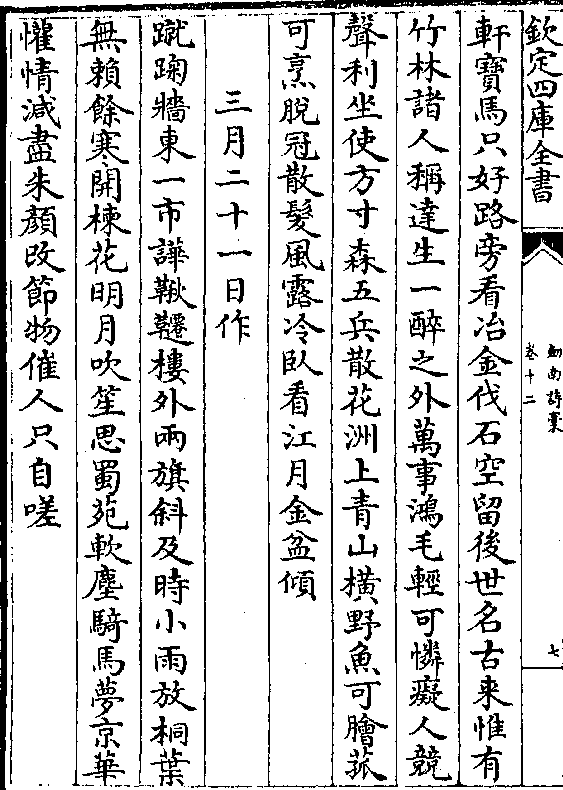 欽定四庫全書
劍南詩稾
卷十二
七
軒寶馬只好路旁看冶金伐石空留後世名古来惟有
竹林諸人稱達生一醉之外萬事鴻毛輕可憐癡人競
聲利坐使方寸森五兵散花洲上青山橫野魚可膾菰
可烹脫冠散髮風露冷臥看江月金盆傾
三月二十一日作
蹴踘牆東一市譁鞦韆樓外兩旗斜及時小雨放桐葉
無賴餘寒開楝花明月吹笙思蜀苑軟塵騎馬夢京華
懽情減盡朱顏改節物催人只自嗟